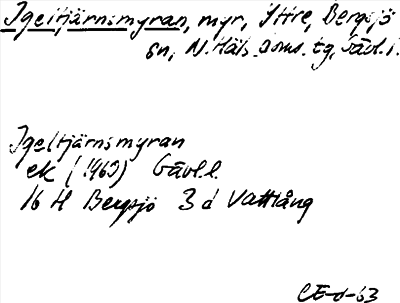 Igeltjärnsmyran, myr, Yttre, Bergsjö
sn, N. Häls. doms. tg, Gävl. l.
Igeltjärnsmyran
ek (1963) Gävl.l.
16 H Bergsjö 3 d Vattlång
CE-d-63